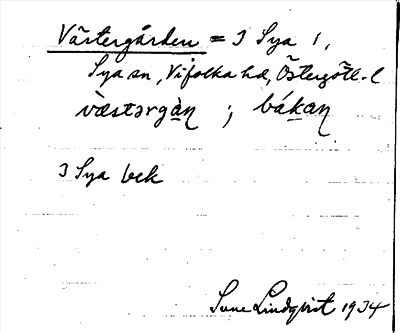 Västergården = 3 Sya 1,
Sya sn, Vifolka hd, Östergötl. l
väs̀tərgàṇ ; bákaṇ
3 Sya bek
Sune Lindqvist 1934